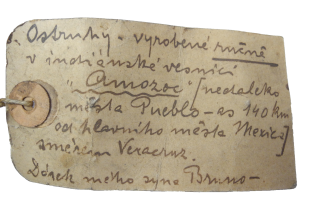 Ostruhy - vyrobené ručně
v indiánské vesnici
"Amozoc" [nedaleko
města Pueblo - as 140 km
od hlavního města Mexica]
směrem Veracruz.
Dárek mého syna Bruno-